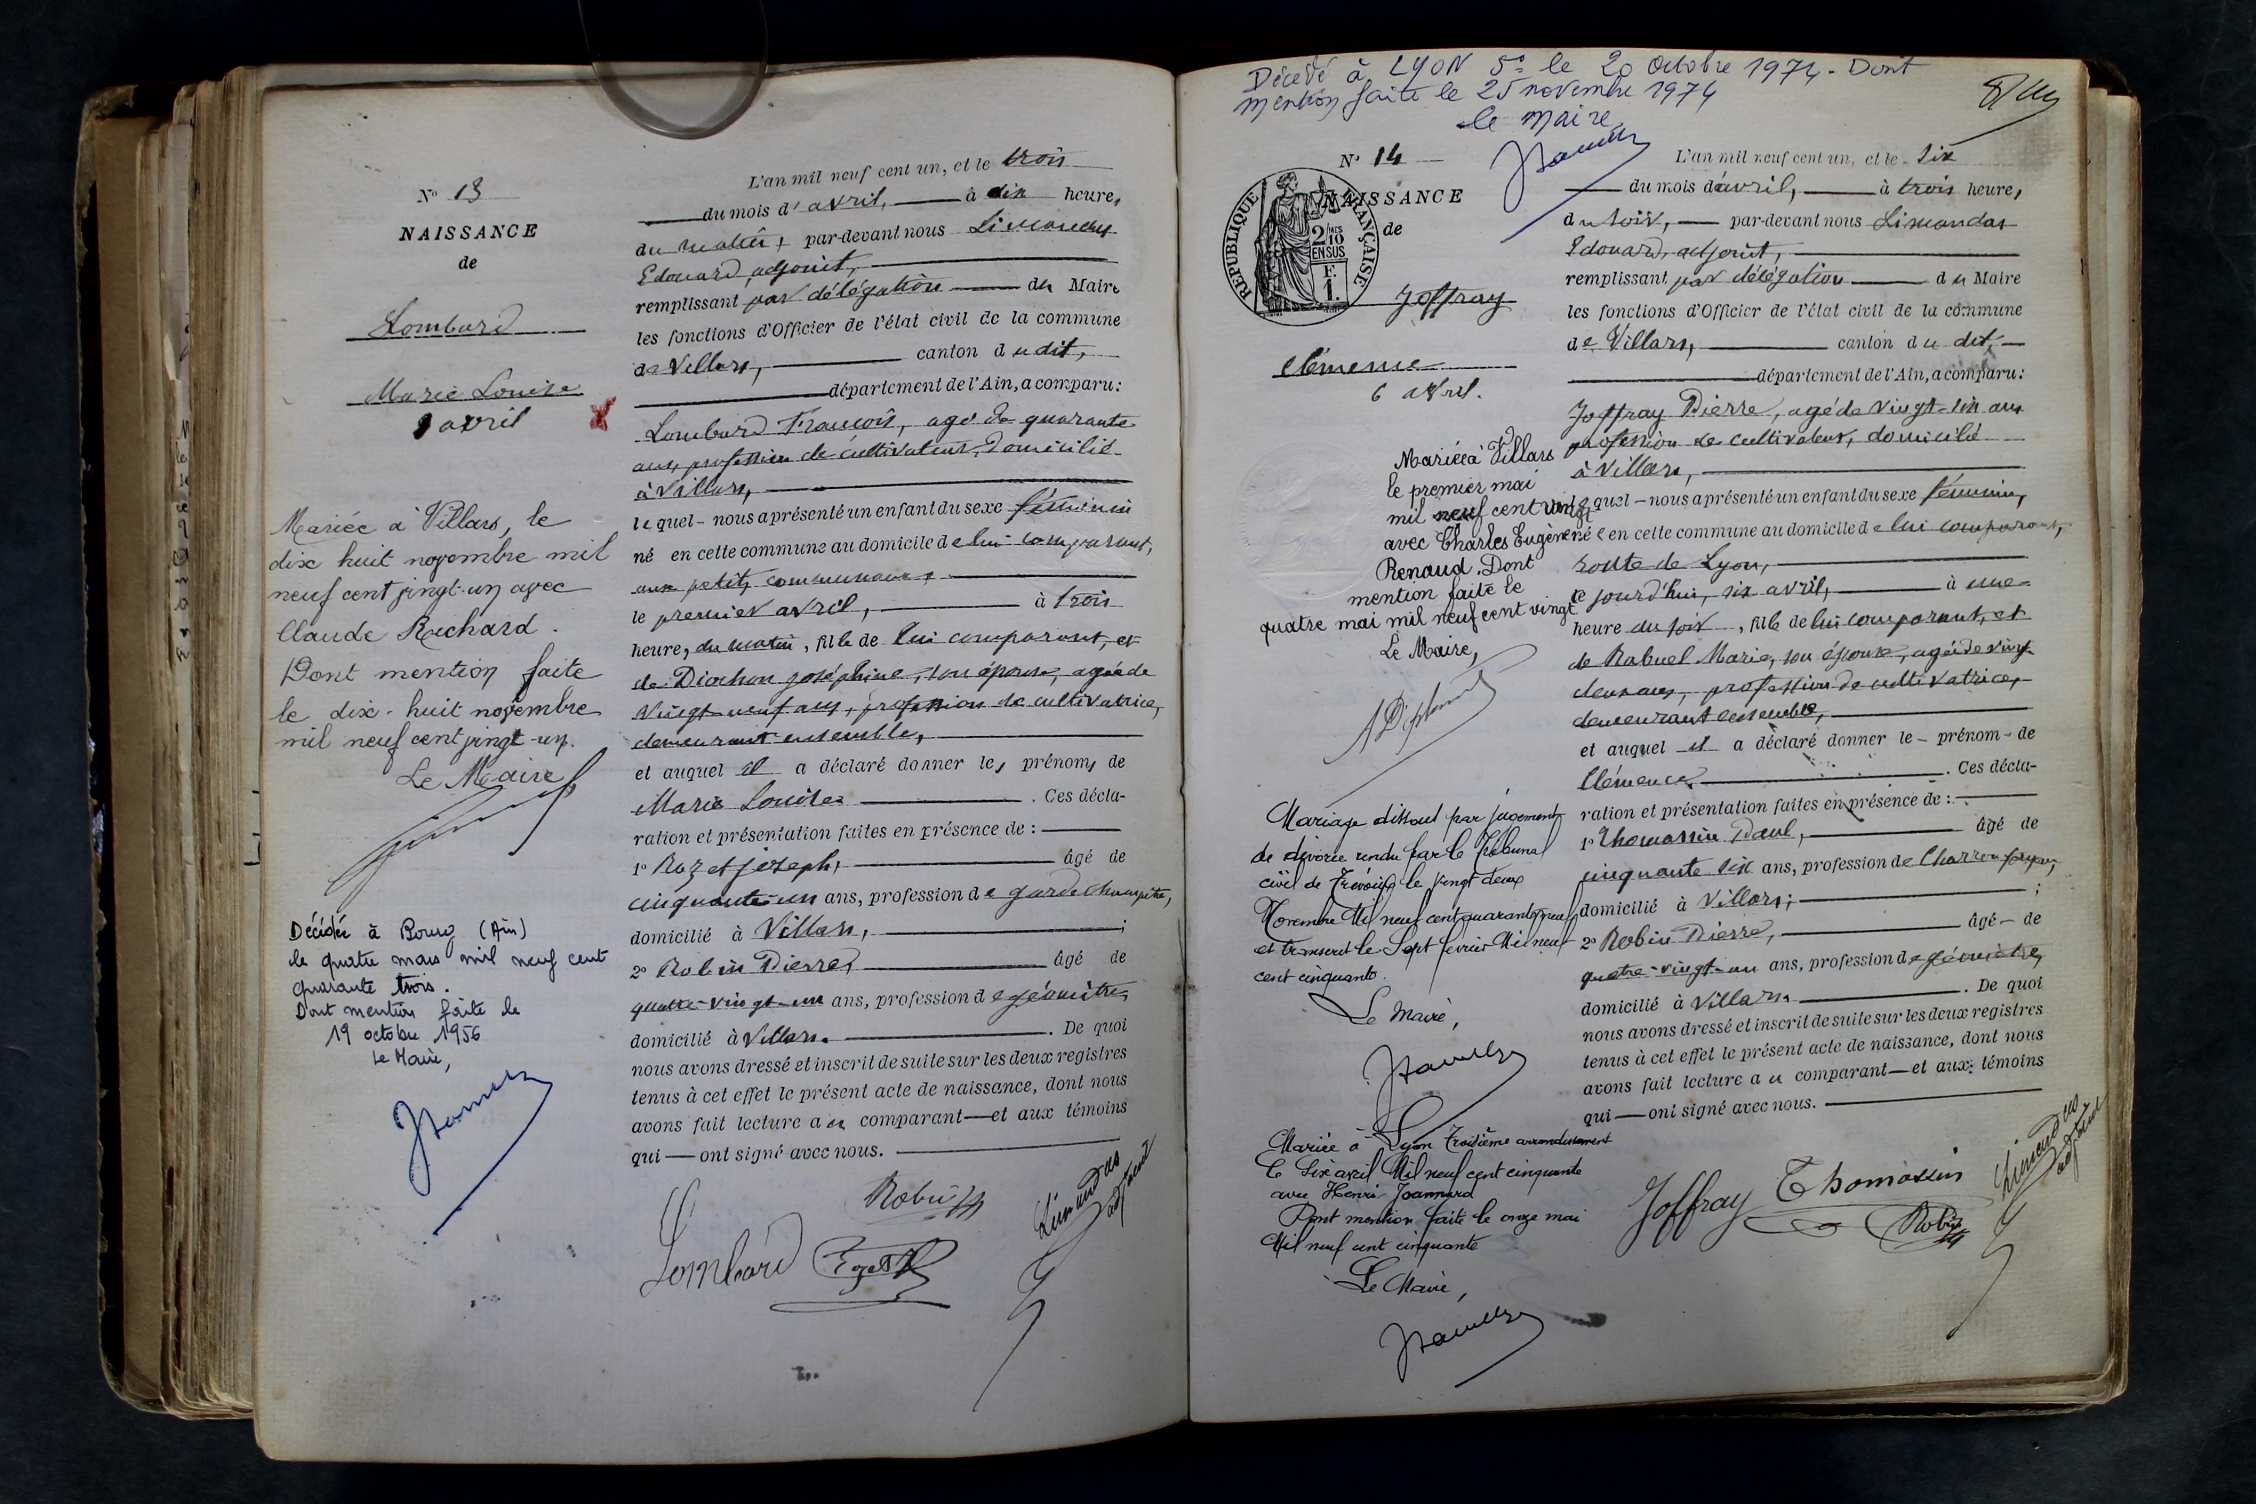 N° 13
NAISSANCE
de
Lombard
Marie Louise
1 avril
Mariée à Villars, le
dix huit novembre mil
neuf cent vingt-un avec
Claude Richard.
Dont mention faite
le dix-huit novembre
mil neuf cent vingt-un.
Le Maire
Décédée à Bourg (Ain)
le quatre mars mil neuf cent
quarante trois.
Dont mention faite le
19 octobre 1956
Le Maire,
L'an mil neuf cent un, et le trois
du mois d'avril, à dix heures,
du matin, par-devant nous Limandas
Edouard, adjoint,
remplissant par délégation du Maire
les fonctions d'Officier de l'état civil de la commune
de Villars, canton du dit,
département de l'Ain, a comparu:
Lombard François, agé de quarante
ans, profession de cultivateur, domicilié
à Villars,
lequel nous a présenté un enfant du sexe féminin
né en cette commune au domicile de lui comparant,
aux petits communaux,
le premier avril, à trois
heures, du matin, fille de lui comparant, et
de Diochon joséphine, son épouse, agée de
vingt-neuf ans, profession de cultivatrice,
demeurant ensemble,
et auquel il a déclaré donner les prénoms de
Marie Louise. Ces décla-
ration et présentation faites en présence de :
1° Rozet joseph, âgé de
cinquante-un ans, profession de garde champêtre,
domicilié à Villars, ;
2° Robin Pierre, âgé de
quatre-vingt-un ans, profession de géomètre,
domicilié à Villars. De quoi
nous avons dressé et inscrit de suite sur les deux registres
tenus à cet effet le présent acte de naissance, dont nous
avons fait lecture au comparant et aux témoins
qui ont signé avec nous.
Robin
Lombard Rozet
Limandas
adjoint
Décédé à LYON 5e le 20 Octobre 1974 - Dont
mention faite le 25 novembre 1974
le Maire
N° 14
RÉPUBLIQUE FRANÇAISE
2/10 EN SUS
F. 1.
NAISSANCE
de
Joffray
Clémence
6 avril.
Mariée à Villars
le premier mai
mil neuf cent vingt
avec Charles Eugène
Renaud. Dont
mention faite le
quatre mai mil neuf cent vingt
Le Maire,
Mariage dissout par jugement
de divorce rendu par le Tribunal
civil de Trévoux le vingt deux
Novembre Mil neuf cent quarante neuf
et transcrit le Sept février Mil neuf
cent cinquante.
Le Maire,
Mariée à Lyon troisième arrondissement
le Six avril Mil neuf cent cinquante
avec Henri Joannard
Dont mention faite le onze mai
Mil neuf cent cinquante
Le Maire,
L'an mil neuf cent un, et le six
du mois d'avril, à trois heures,
du soir, par-devant nous Limandas
Edouard, adjoint,
remplissant par délégation du Maire
les fonctions d'Officier de l'état civil de la commune
de Villars, canton du dit,
département de l'Ain, a comparu:
Joffray Pierre, agé de vingt-six ans
profession de cultivateur, domicilié
à Villars,
lequel nous a présenté un enfant du sexe féminin,
née en cette commune au domicile de lui comparant,
route de Lyon,
ce jourd'hui, six avril, à une
heure du soir, fille de lui comparant, et
de Rabuel Marie, son épouse, agée de vingt
deux ans, profession de cultivatrice,
demeurant ensemble,
et auquel il a déclaré donner le prénom de
Clémence. Ces décla-
ration et présentation faites en présence de :
1° Thomassin Paul, âgé de
cinquante six ans, profession de Charron forgeron,
domicilié à Villars, ;
2° Robin Pierre, âgé de
quatre-vingt-un ans, profession de géomètre,
domicilié à Villars. De quoi
nous avons dressé et inscrit de suite sur les deux registres
tenus à cet effet le présent acte de naissance, dont nous
avons fait lecture au comparant et aux témoins
qui ont signé avec nous.
Joffray Thomassin
Robin
Limandas
adjoint